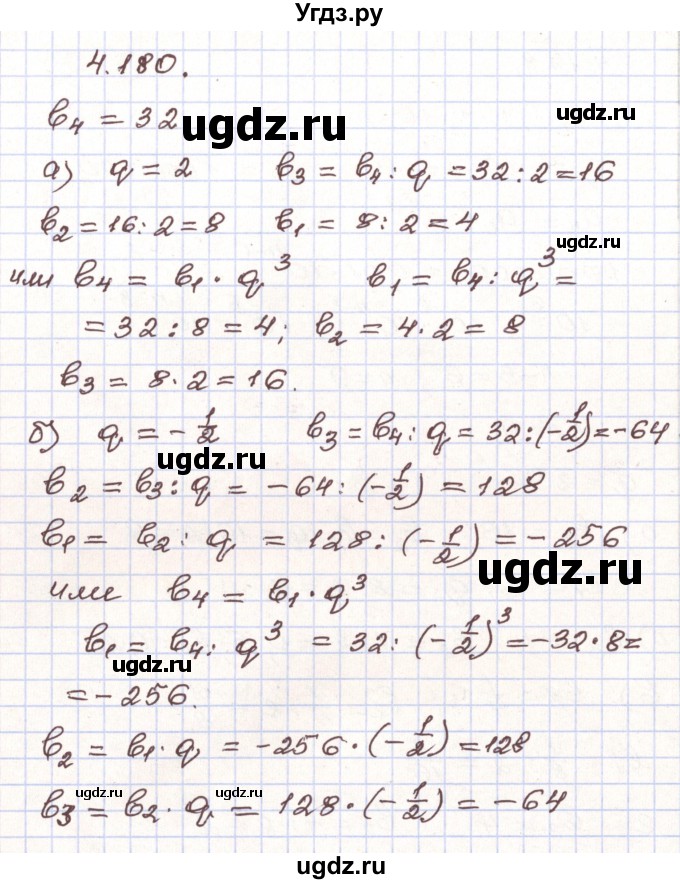 Угдз.ру
4.180.
b₄ = 32
ugdz.ru
ugdz.ru
а) q = 2 b₃ = b₄ : q = 32 : 2 = 16
b₂ = 16 : 2 = 8 b₁ = 8 : 2 = 4
ugdz.ru
или b₄ = b₁ · q³ b₁ = b₄ : q³ =
= 32 : 8 = 4; b₂ = 4 · 2 = 8
b₃ = 8 · 2 = 16.
б) q = -1/2 b₃ = b₄ : q = 32 : (-1/2) = -64
ugdz.ru
b₂ = b₃ : q = -64 : (-1/2) = 128
b₁ = b₂ : q = 128 : (-1/2) = -256
ugdz.ru
или b₄ = b₁ · q³
b₁ = b₄ : q³ = 32 : (-1/2)³ = -32 · 8 =
ugdz.ru
= -256.
b₂ = b₁ · q = -256 · (-1/2) = 128
ugdz.ru
ugdz.ru
b₃ = b₂ · q = 128 · (-1/2) = -64
ugdz.ru